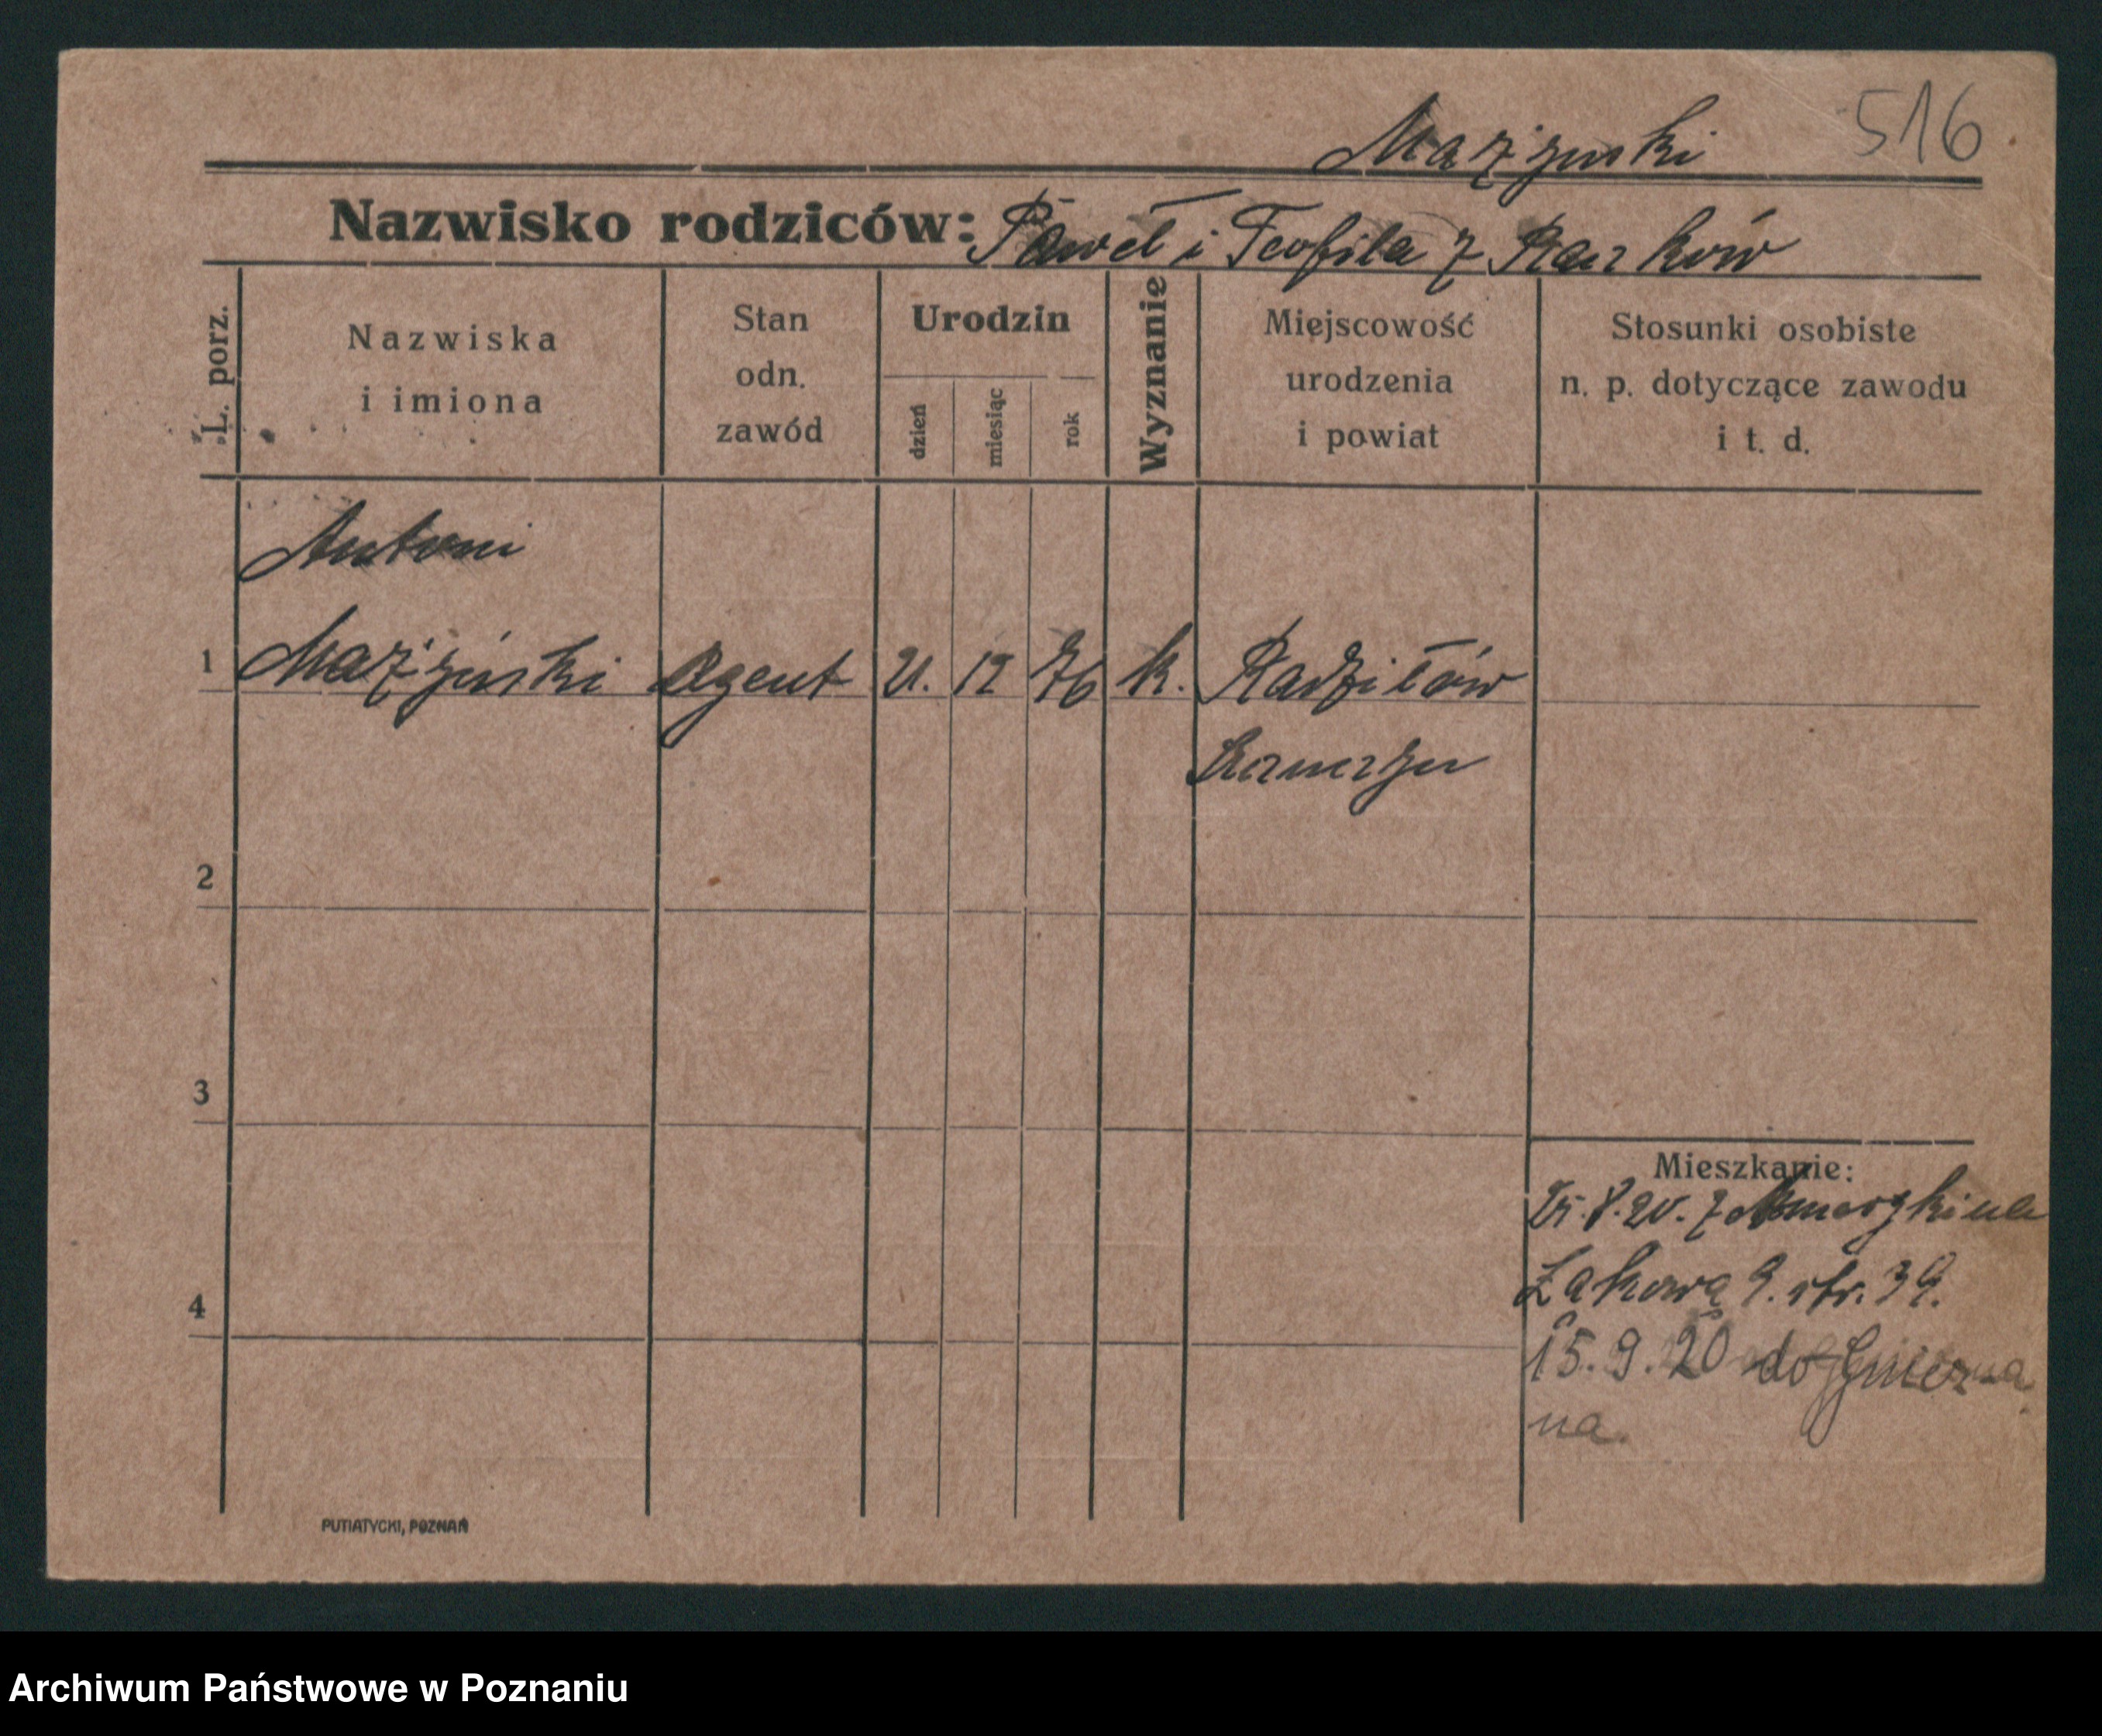 516
Mażyński
Nazwisko rodziców: Paweł i Teofila z
L. porz.
Nazwiska
i imiona
Stan
odn.
zawód
Urodzin
dzień
miesiąc
rok
Wyznanie
Miejscowość
urodzenia
i powiat
Stosunki osobiste
n. p. dotyczące zawodu
i t. d.
Antoni
1 Mażyński Agent 21. 12 76 k. Radziłów
2
3
Mieszkanie:
8. 20. z
Łąkowa 9. str. 39.
4
15. 9. 20 do Gniezna
na.
PUTIATYCKI, POZNAŃ
Archiwum Państwowe w Poznaniu